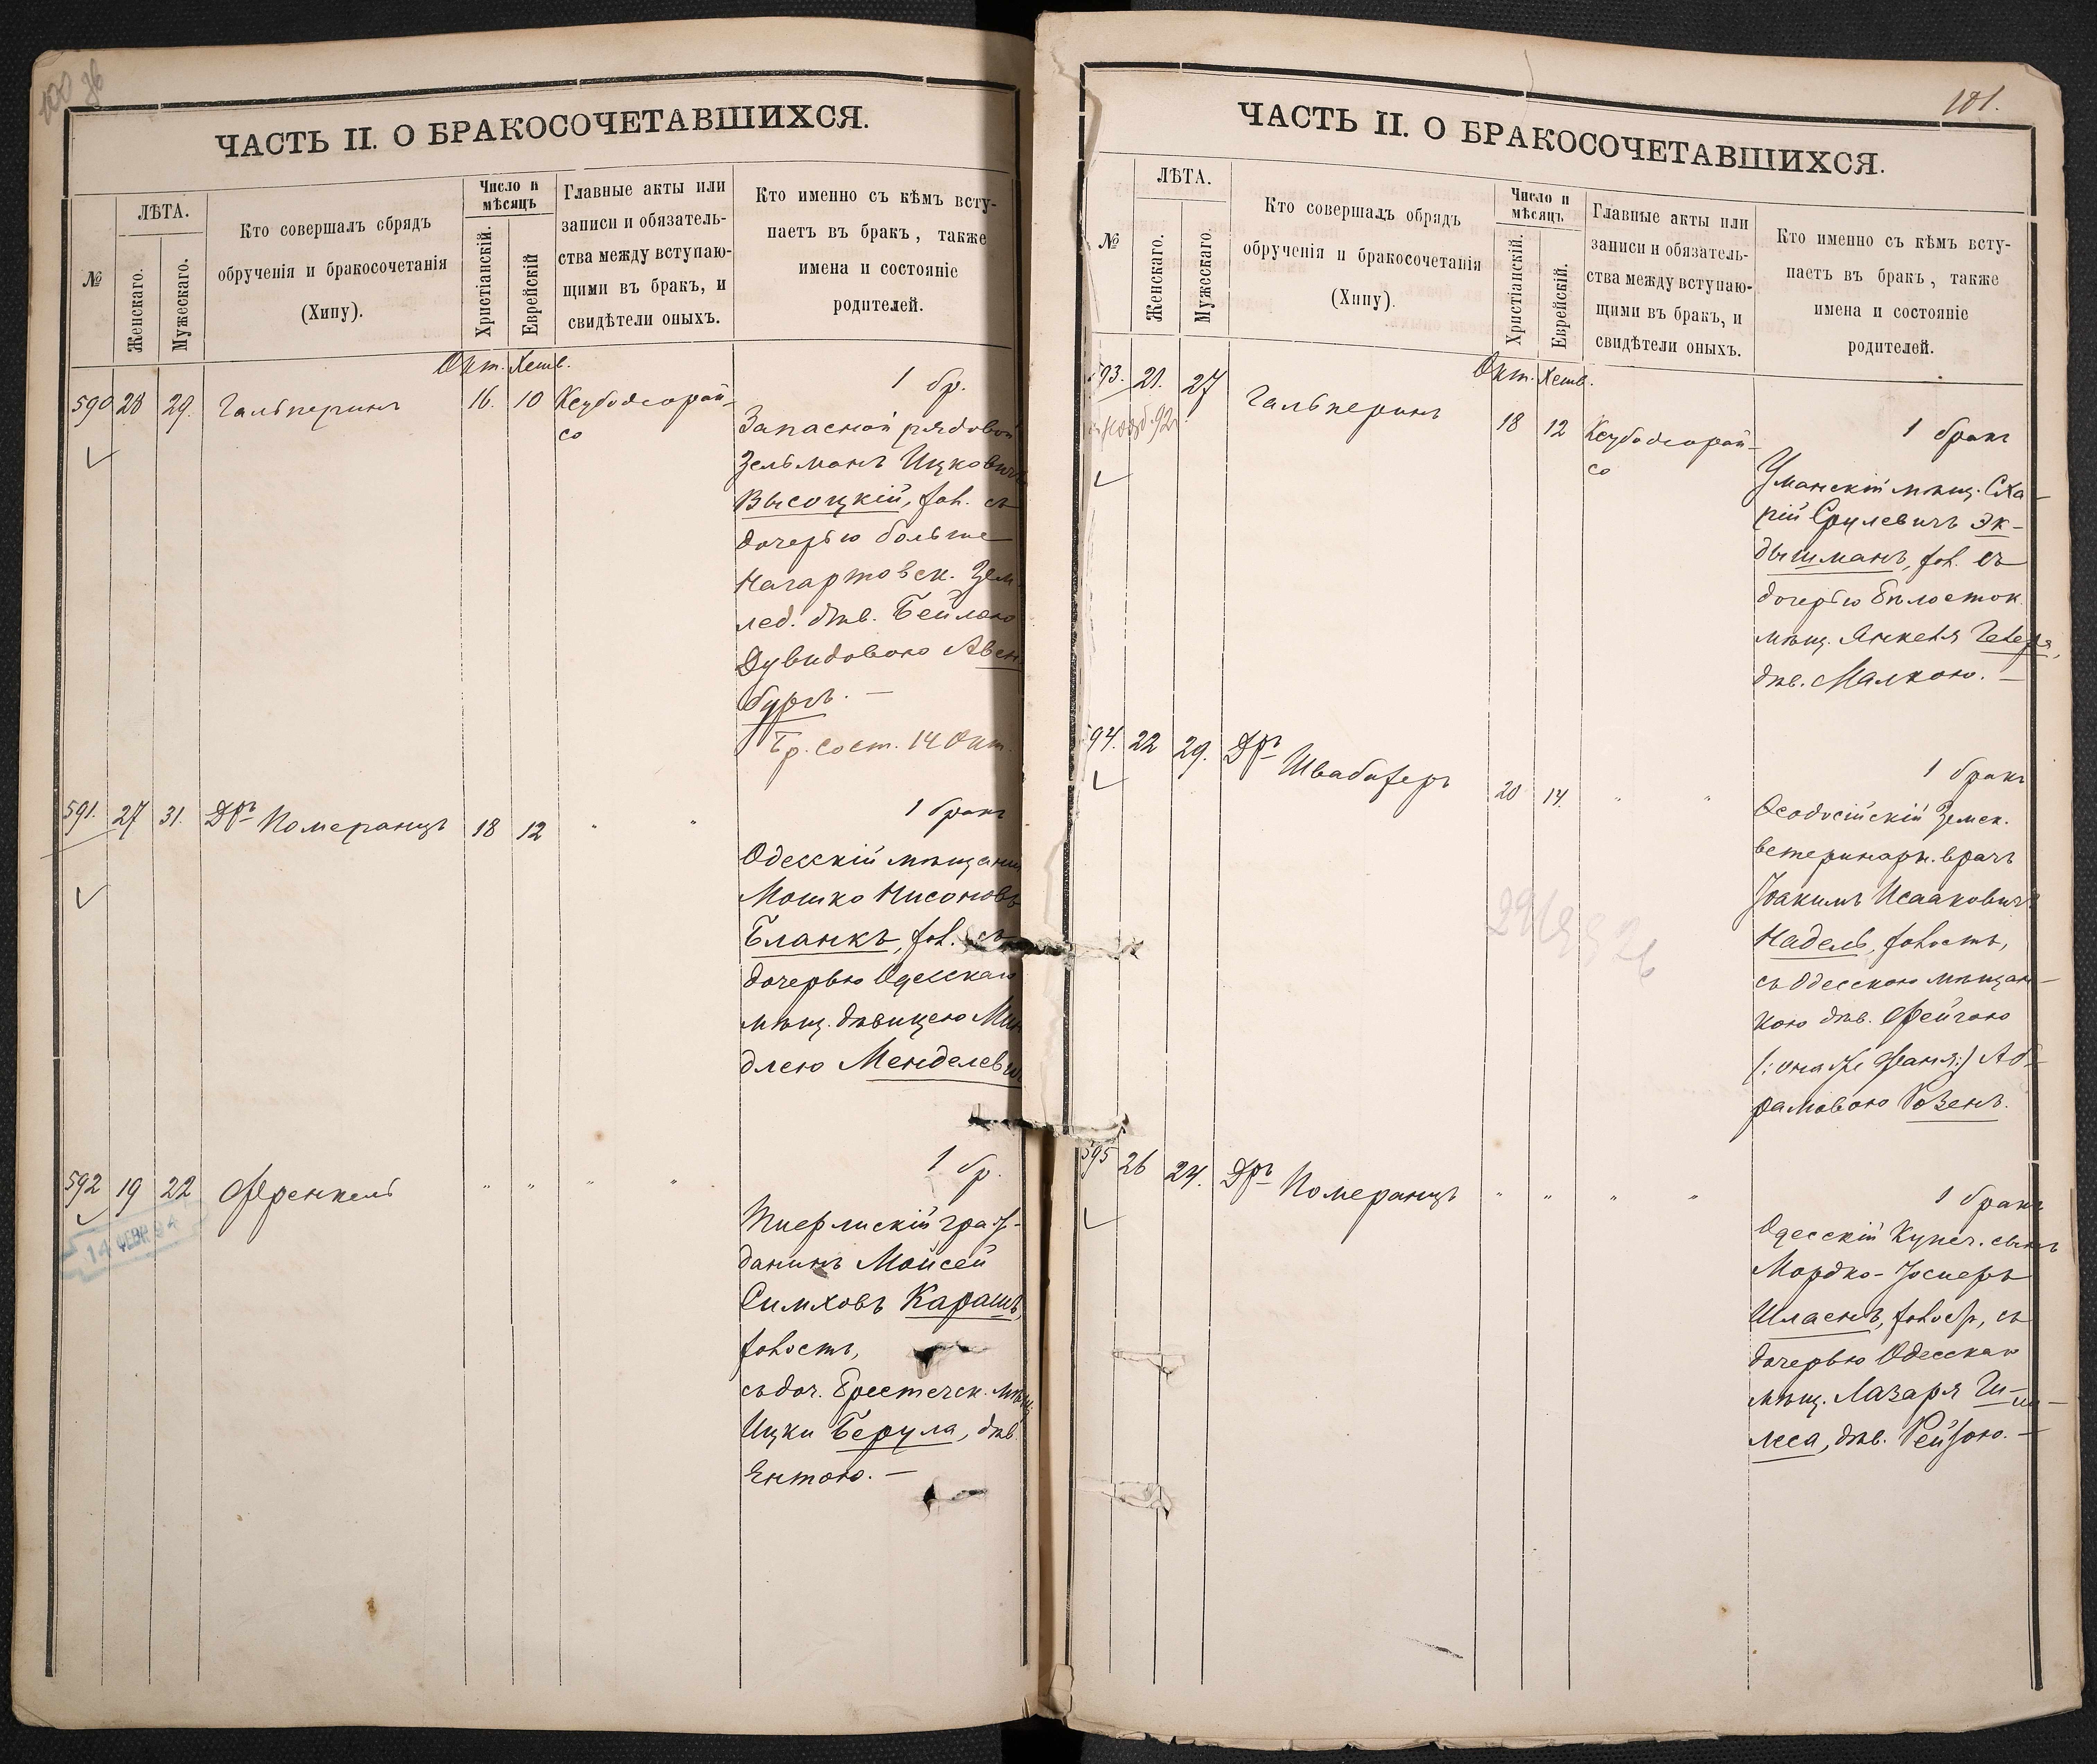 100 зв
ЧАСТЬ II. О БРАКОСОЧЕТАВШИХСЯ.
№
ЛѢТА.
Женскаго.
Мужескаго.
Кто совершалъ обрядъ
обрученія и бракосочетанія
(Хипу).
Число и
мѣсяцъ
Христіанскій.
Еврейскій
Главные акты или
записи и обязатель-
ства между вступаю-
щими въ бракъ, и
свидѣтели оныхъ.
Кто именно съ кѣмъ всту-
паетъ въ бракъ, также
имена и состояніе
родителей.
Окт. Хешв.
590 28 29. Гальперинъ 16. 10 Ксубодеорай-
со
1 бр.
Запасной рядовой
Зельманъ Ицковичъ
Высоцкій, хол. съ
дочерью больше
Нагартовск. Зем-
лед. дѣв. Бейлою
Дувидовою Авен-
бургъ. —
Бр. сост. 14 Окт.
591. 27 31. Д-ръ Померанцъ 18 12 " "
1 бракъ
Одесскій мѣщанин
Мошко Нисоновъ
Бланкъ, хол. съ
дочерью Одесскаго
мѣщ. дѣвицею Мин
длею Менделевич
592 19 22 Френкель " " " "
14 ФЕВР 94
1 бр.
гра ж-
данинъ Мойсей
Симховъ Карашъ,
холость,
съ доч. Брестечск. мѣщ.
Ицки Берула, дѣв.
Ентою. —
101.
ЧАСТЬ II. О БРАКОСОЧЕТАВШИХСЯ.
№
ЛѢТА.
Женскаго.
Мужескаго.
Кто совершалъ обрядъ
обрученія и бракосочетанія
(Хипу).
Число и
мѣсяцъ
Христіанскій.
Еврейскій.
Главные акты или
записи и обязатель-
ства между вступаю-
щими въ бракъ, и
свидѣтели оныхъ.
Кто именно съ кѣмъ всту-
паетъ въ бракъ, также
имена и состояніе
родителей.
Окт. Хешв.
593. 21. 27 Гальперинъ 18 12 Ксубодеорай-
со
1 бракъ
Уманскій мѣщ. Сха-
рій Срулевичъ Эк-
дышманъ, хол. съ
дочерью Бѣлосток.
мѣщ. Янкеля Гехера,
дѣв. Малкою. —
594. 22 29. Д-ръ Швабахеръ 20 14. " "
1 бракъ
Ѳеодосійскій Земск.
ветеринарн. врачъ
Іоакимъ Исааковичъ
Надель, холость,
съ Одесскою мѣщан-
кою дѣв. Фейгою
(: она же Фаня:) Аб-
рамовою Розенъ.
595 26 24. Д-ръ Померанцъ " " " "
1 бракъ
Одесскій Купеч. сынъ
Мордко-Іосперъ
Шлаенъ, холость, съ
дочерью Одесскаго
мѣщ. Лазаря Ги-
леса, дѣв. Рейзою. —